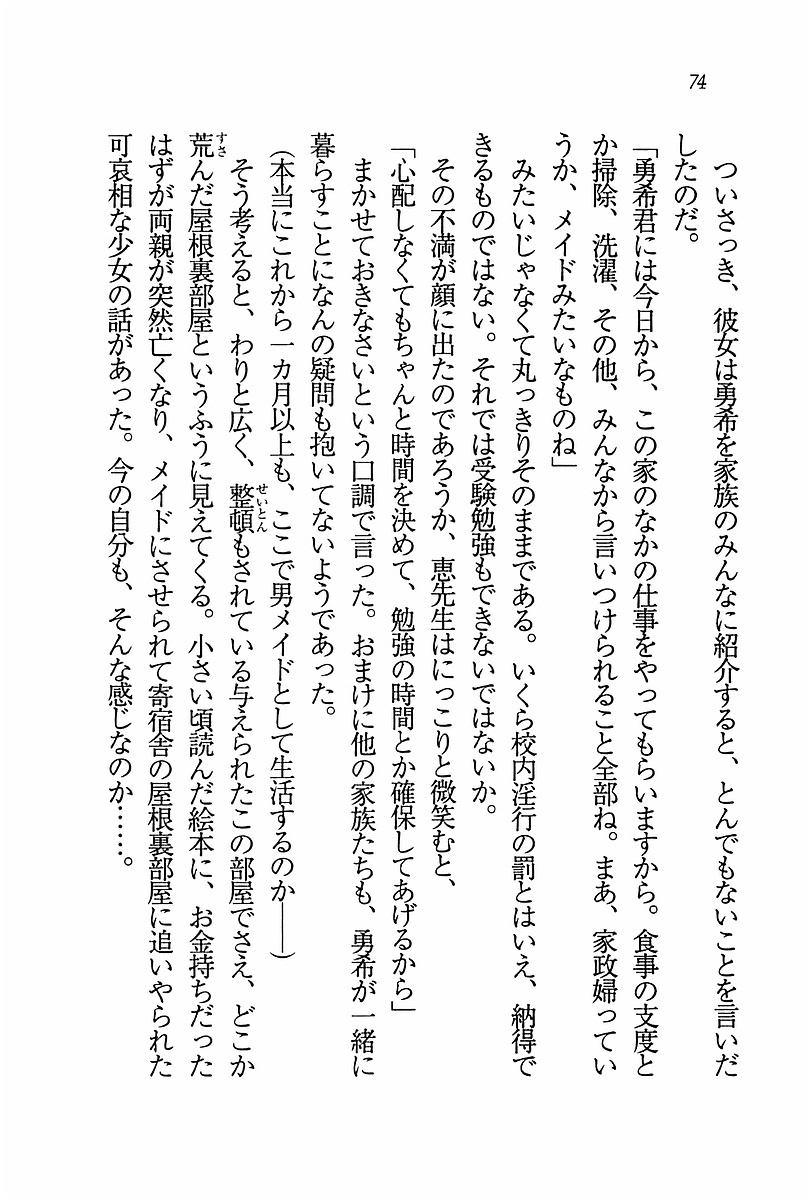 74
ついさっき、彼女は勇希を家族のみんなに紹介すると、とんでもないことを言いだ
したのだ。
「勇希君には今日から、この家のなかの仕事をやってもらいますから。食事の支度と
か掃除、洗濯、その他、みんなから言いつけられること全部ね。まあ、家政婦ってい
うか、メイドみたいなものね」
みたいじゃなくて丸っきりそのままである。いくら校内淫行の罰とはいえ、納得で
きるものではない。それでは受験勉強もできないではないか。
その不満が顔に出たのであろうか、恵先生はにっこりと微笑むと、
「心配しなくてもちゃんと時間を決めて、勉強の時間とか確保してあげるから」
まかせておきなさいという口調で言った。おまけに他の家族たちも、勇希が一緒に
暮らすことになんの疑問も抱いてないようであった。
（本当にこれから一カ月以上も、ここで男メイドとして生活するのか――）
そう考えると、わりと広く、整頓もされている与えられたこの部屋でさえ、どこか
荒んだ屋根裏部屋というふうに見えてくる。小さい頃読んだ絵本に、お金持ちだった
はずが両親が突然亡くなり、メイドにさせられて寄宿舎の屋根裏部屋に追いやられた
可哀相な少女の話があった。今の自分も、そんな感じなのか……。